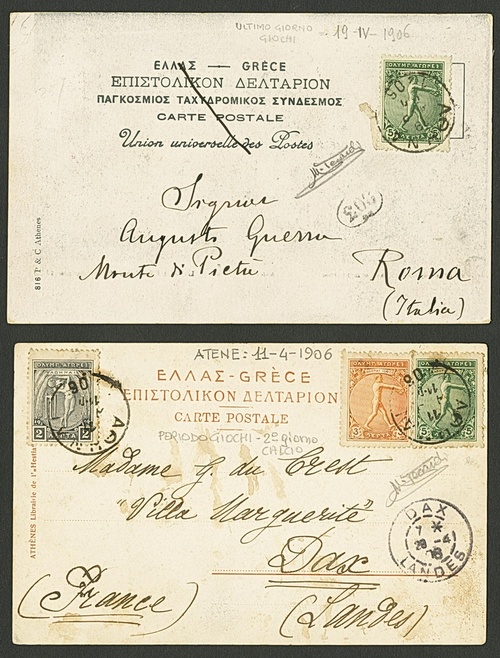 ULTIMO GIORNO
GIOCHI
19-IV-1906
ΕΛΛΑΣ — GRÈCE
ΕΠΙΣΤΟΛΙΚΟΝ ΔΕΛΤΑΡΙΟΝ
ΠΑΓΚΟΣΜΙΟΣ ΤΑΧΥΔΡΟΜΙΚΟΣ ΣΥΝΔΕΣΜΟΣ
CARTE POSTALE
Union universelle des Postes
ΟΛΥΜΠ. ΑΓΩΝΕΣ
5 5
Signor
Augusto Guerra
Monte di Pietà
Roma
(Italia)
816 P & C Athènes
ATENE: 11-4-1906
ΕΛΛΑΣ-GRÈCE
ΕΠΙΣΤΟΛΙΚΟΝ ΔΕΛΤΑΡΙΟΝ
CARTE POSTALE
PERIODO GIOCHI - 2º giorno
CALCIO
ΟΛΥΜΠ. ΑΓΩΝΕΣ
2 2
3
5
Madame J. du Crest
"Villa Marguerite"
Dax
(France)
(Landes)
DAX
LANDES
ATHÈNES Librairie de l'«Hestia